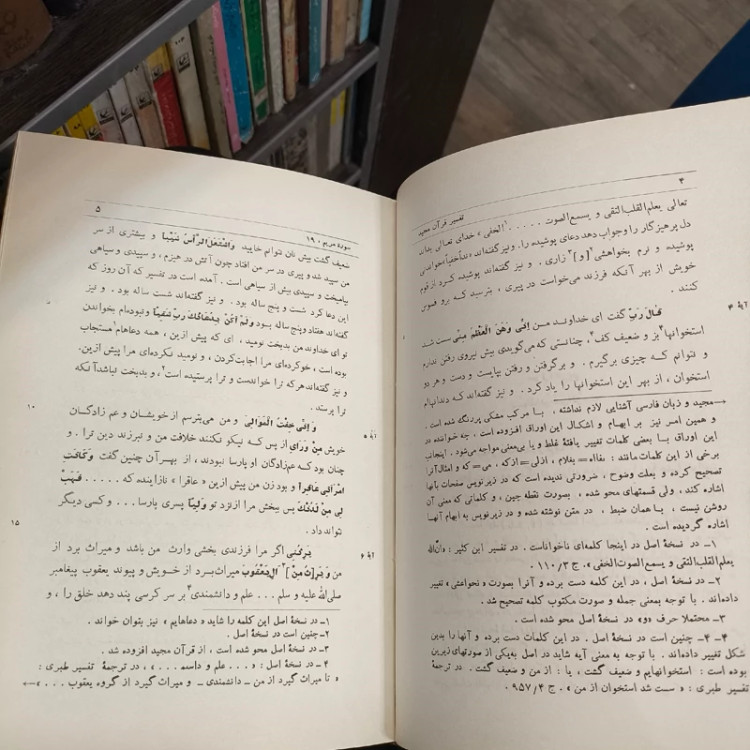 ۴
تفسیر قرآن مجید
تعالی یعلم‌القلب‌التقی و یسمع‌الصوت . . . . .¹ الخفی» خدای تعالی بداند
دل پرهیزگار را وجواب دهد دعای پوشیده را. و نیز گفته‌اند: نداءخفیاً
پوشیده و نرم بخواهشی² [و]³ زاری . و نیز گفته‌اند پوشیده کرد از قوم
خویش از بهر آنکه فرزند می‌خواست در پیری ، بترسید که برو فسوس
کنند .
آیهٔ ۴
قال رَبِّ گفت ای خداوند من اِنّی وَهَنَ الْعَظْمُ مِنّی سست شد
استخوانها⁴ بر و ضعیف گف⁴، چنانستی که می‌گویدی بیش نیروی رفتن ندارم
و نتوانم که چیزی برگیرم . و برگرفتن و رفتن بپایست و دست و هر دو
استخوان، از بهر این استخوانها را یاد کرد . و نیز گفته‌اند که دندانهام
← مجید و زبان فارسی آشنایی لازم نداشته ، با مرکب مشکی پررنگ شده است .
و همین امر نیز بر ابهام و اشکال این اوراق افزوده است ، چه خواننده در
این اوراق با بعضی کلمات تغییر یافتهٔ غلط و یا بی‌معنی مواجه می‌شود. اینجانب
برخی از این کلمات مانند: بفلام ، که ، می که و امثال‌آنرا
تصحیح کرده و بعلت وضوح ، ضرورتی ندیده است که در زیرنویس صفحات بآنها
اشاره کند، ولی قسمتهای محو شده ، بصورت نقطه چین ، و کلماتی که معنی آن
روشن نیست ، با همان ضبط ، در متن نوشته شده و در زیرنویس به ابهام آنها
اشاره گردیده است .
۱ـ در نسخهٔ اصل در اینجا کلمه‌ای ناخواناست . در تفسیر ابن کثیر: «ان‌الله
یعلم‌القلب‌التقی و یسمع‌الصوت‌الخفی» . ج ۱۱۰/۳ .
۲ـ در نسخهٔ اصل ، در این کلمه دست برده و آنرا بصورت «نحواعشی» تغییر
داده‌اند . با توجه به معنی جمله و صورت مکتوب کلمه تصحیح شد .
۳ـ محتملا حرف «و» در نسخهٔ اصل محو شده است .
۴ـ۴ـ چنین است در نسخهٔ اصل . در این کلمات دست برده و آنها را بدین
شکل تغییر داده‌اند . با توجه به معنی آیه شاید در اصل به‌یکی از صورتهای زیرین
بوده است : استخوانهایم و ضعیف گشت ، یا : از من و ضعیف گشت . در ترجمهٔ
تفسیر طبری : «سست شد استخوان از من» . ج ۹۵۷/۴ .
۵
سورهٔ مریم ، ۱۹
ضعیف گشت بیش نان نتوانم خایید وَاشْتَعَلَ الرَّأْسُ شَیْباً و بیشتری از سر
من سپید شد و پیری در سر من افتاد چون آتش در هیزم ، و سپیدی و سیاهی
بیامیخت و سپیدی بیش از سیاهی است . آمده است در تفسیر که آن روز که
این دعا کرد شست و پنج ساله بود . و نیز گفته‌اند شست ساله بود . و نیز
گفته‌اند هفتاد وپنج ساله بود وَلَمْ اَکُنْ بِدُعَائِکَ رَبِّ شَقِیّاً ونبوده‌ام بخواندن
تو ای خداوند من بدبخت نومید ، ای که پیش ازین ، همه دعاهام¹ مستجاب
بوده است ، خوکرده‌ای مرا اجابت‌کردن ، و نومید نکرده‌ای مرا پیش ازین.
و نیز گفته‌اند هر که ترا خواندست و ترا پرستیده است² ، و بدبخت نباشد آنکه
ترا پرستد .
۱۰
آیهٔ ۵
وَ اِنّی خِفْتُ الْمَوَالِیَ و من می‌ترسم از خویشان و عم زادگان
خویش مِنْ وَرَای از پس که نیکو نکنند خلافت من و نبرزند دین ترا . و
چنان بود که عم‌زادگان او پارسا نبودند ، از بهر آن چنین گفت وَ کَانَتِ
امْرَأَتی عَاقِراً و بود زن من پیش ازین «عاقرا» نازاینده که . . . . . . فَهَبْ
لِی مِنْ لَدُنْکَ پس ببخش مرا ازنزد تو وَلِیّاً پسری پارسا . . . و کسی دیگر
نتواند داد .
۱۵
آیهٔ ۶
یَرِثُنی اگر مرا فرزندی بخشی وارث من باشد و میراث برد از
من وَ یَرِ[ثُ مِنْ]³ آلِ یَعْقُوبَ میراث برد از خویش و پیوند یعقوب پیغامبر
صلی‌الله علیه و سلم . . . علم و دانشمندی⁴ بر سر کرسی پند دهد خلق را ، و
۱ـ در نسخهٔ اصل این کلمه را شاید «دعاهایم» نیز بتوان خواند .
۲ـ چنین است در نسخهٔ اصل .
۳ـ در نسخهٔ اصل محو شده است ، از قرآن مجید افزوده شد .
۴ـ در نسخهٔ اصل : « . . . علم و دانسم . . . » ، در ترجمهٔ تفسیر طبری :
« تا میراث گیرد از من ـ دانشمندی ـ و میراث گیرد از گروه یعقوب . . . » ←